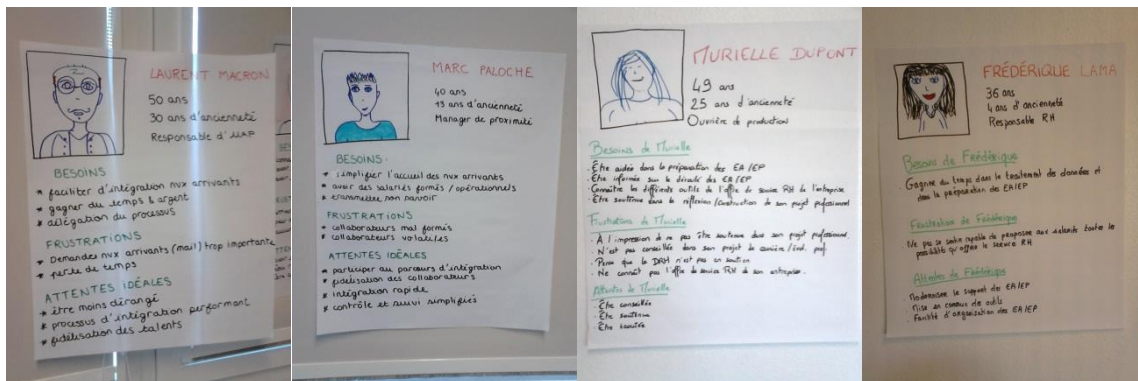 LAURENT MACRON
50 ans
30 ans d'ancienneté
Responsable d'UAP
BESOINS
* faciliter d'intégration nvx arrivants
* gagner du temps & argent
* délégation du processus
FRUSTRATIONS
* Demandes nvx arrivants (mail) trop importante
* perte de temps
ATTENTES IDÉALES
* être moins dérangé
* processus d'intégration performant
* fidélisation des talents
MARC PALOCHE
40 ans
19 ans d'ancienneté
Manager de proximité
BESOINS:
* simplifier l'accueil des nvx arrivants
* avoir des salariés formés / opérationnels
* transmettre son savoir
FRUSTRATIONS
* collaborateurs mal formés
* collaborateurs volatiles
ATTENTES IDÉALES
* participer au parcours d'intégration
* fidélisation des collaborateurs
* intégration rapide
* contrôle et suivi simplifiés
MURIELLE DUPONT
49 ans
25 ans d'ancienneté
Ouvrière de production
Besoins de Murielle
- Être aidée dans la préparation des EA/EP
- Être informée sur le déroulé des EA/EP
- Connaître les différents outils de l'offre de service RH de l'entreprise
- Être soutenue dans la réflexion/construction de son projet professionnel
Frustrations de Murielle
- A l'impression de ne pas être soutenue dans son projet professionnel.
- N'est pas conseillée dans son projet de carrière / prof.
- Pense que la DRH n'est pas un soutien
- Ne connaît pas l'offre de service RH de son entreprise.
Attentes de Murielle
- Être conseillée
- Être soutenue
- Être écoutée
FRÉDÉRIQUE LAMA
36 ans
4 ans d'ancienneté
Responsable RH
Besoins de Frédérique
- Gagner du temps dans le traitement des données et
dans la préparation des EA/EP
Frustration de Frédérique
- Ne pas se sentir capable de proposer aux salariés toutes les
possibilités qu'offre le service RH
Attentes de Frédérique
- Moderniser le support des EA/EP
- Mise en commun des outils
- Facilité d'organisation des EA/EP